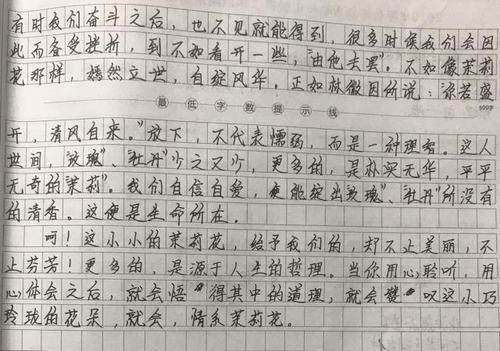 有时我们奋斗之后，也不见就能得到，很多时侯我们会因
此而备受挫折，到不如看开一些，"由他去罢"。不如像茉莉
花那样，嫣然立世，自绽风华。正如林徽因所说："你若盛
最低字数提示线
开，清风自来。"放下，不代表懦弱，而是一种理智。这人
世间，"玫瑰"、"牡丹"少之又少，更多的，是朴实无华，平平
无奇的"茉莉"。我们自信自爱，便能绽出"玫瑰"、"牡丹"所没有
的清香。这便是生命所在。
呵！这小小的茉莉花，给予我们的，却不止美丽，不
止芬芳！更多的，是源于人生的哲理。当你用心聆听，用
心体会之后，就会悟得其中的道理，就会赞叹这小巧
玲珑的花朵，就会，情系茉莉花。